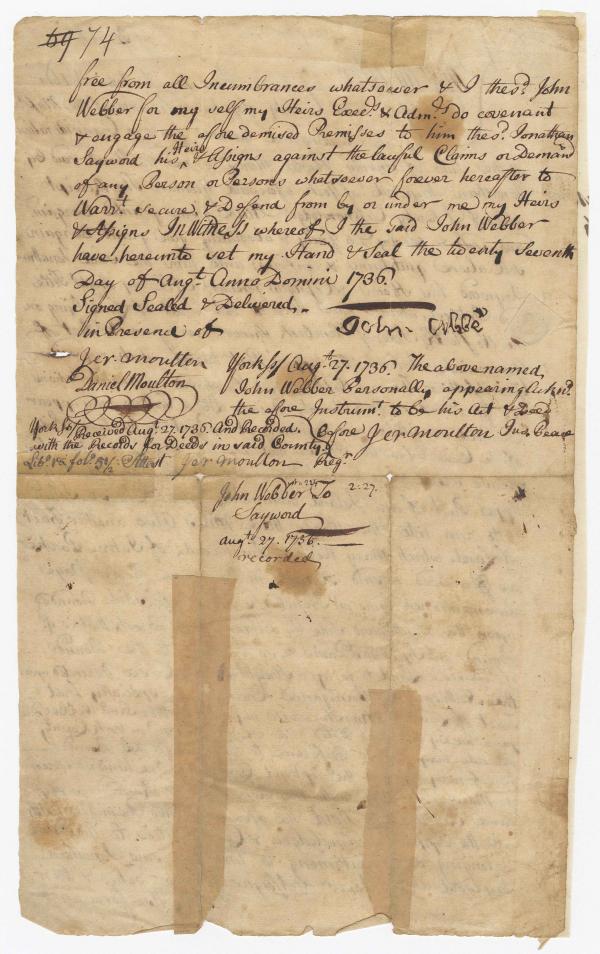 69 74
free from all Incumbrances whatsoever & I the sd. John
Webber for my self my Heirs Execrs. & Admrs. do covenant
& engage the afore demised Premisses to him the sd. Jonathan
Sayword his Heirs & Assigns against the lawful Claims or Demands
of any Person or Persons whatsoever forever hereafter to
Warrt. secure, & Defend from by or under me my Heirs
& Assigns In Witness whereof I the said John Webber
have hereunto set my Hand & Seal the twenty Seventh
Day of Augt. Anno Domini 1736.
Signed Sealed & Delivered
in Presence of
John Webber
Jer. Moulton
Daniel Moulton
York ss/ Augt. 27. 1736. The above named
John Webber Personally appearing Acknd.
the afore Instrumt. to be his Act & Deed
before Jer Moulton Jus. Peace
York ss/ Received Augt. 27. 1736. And Recorded
with the Records for Deeds in said County
Libo. folo. Attest Jer Moulton Regr.
John Webber To 2:27.
Sayword
augt. 27. 1736.
recorded